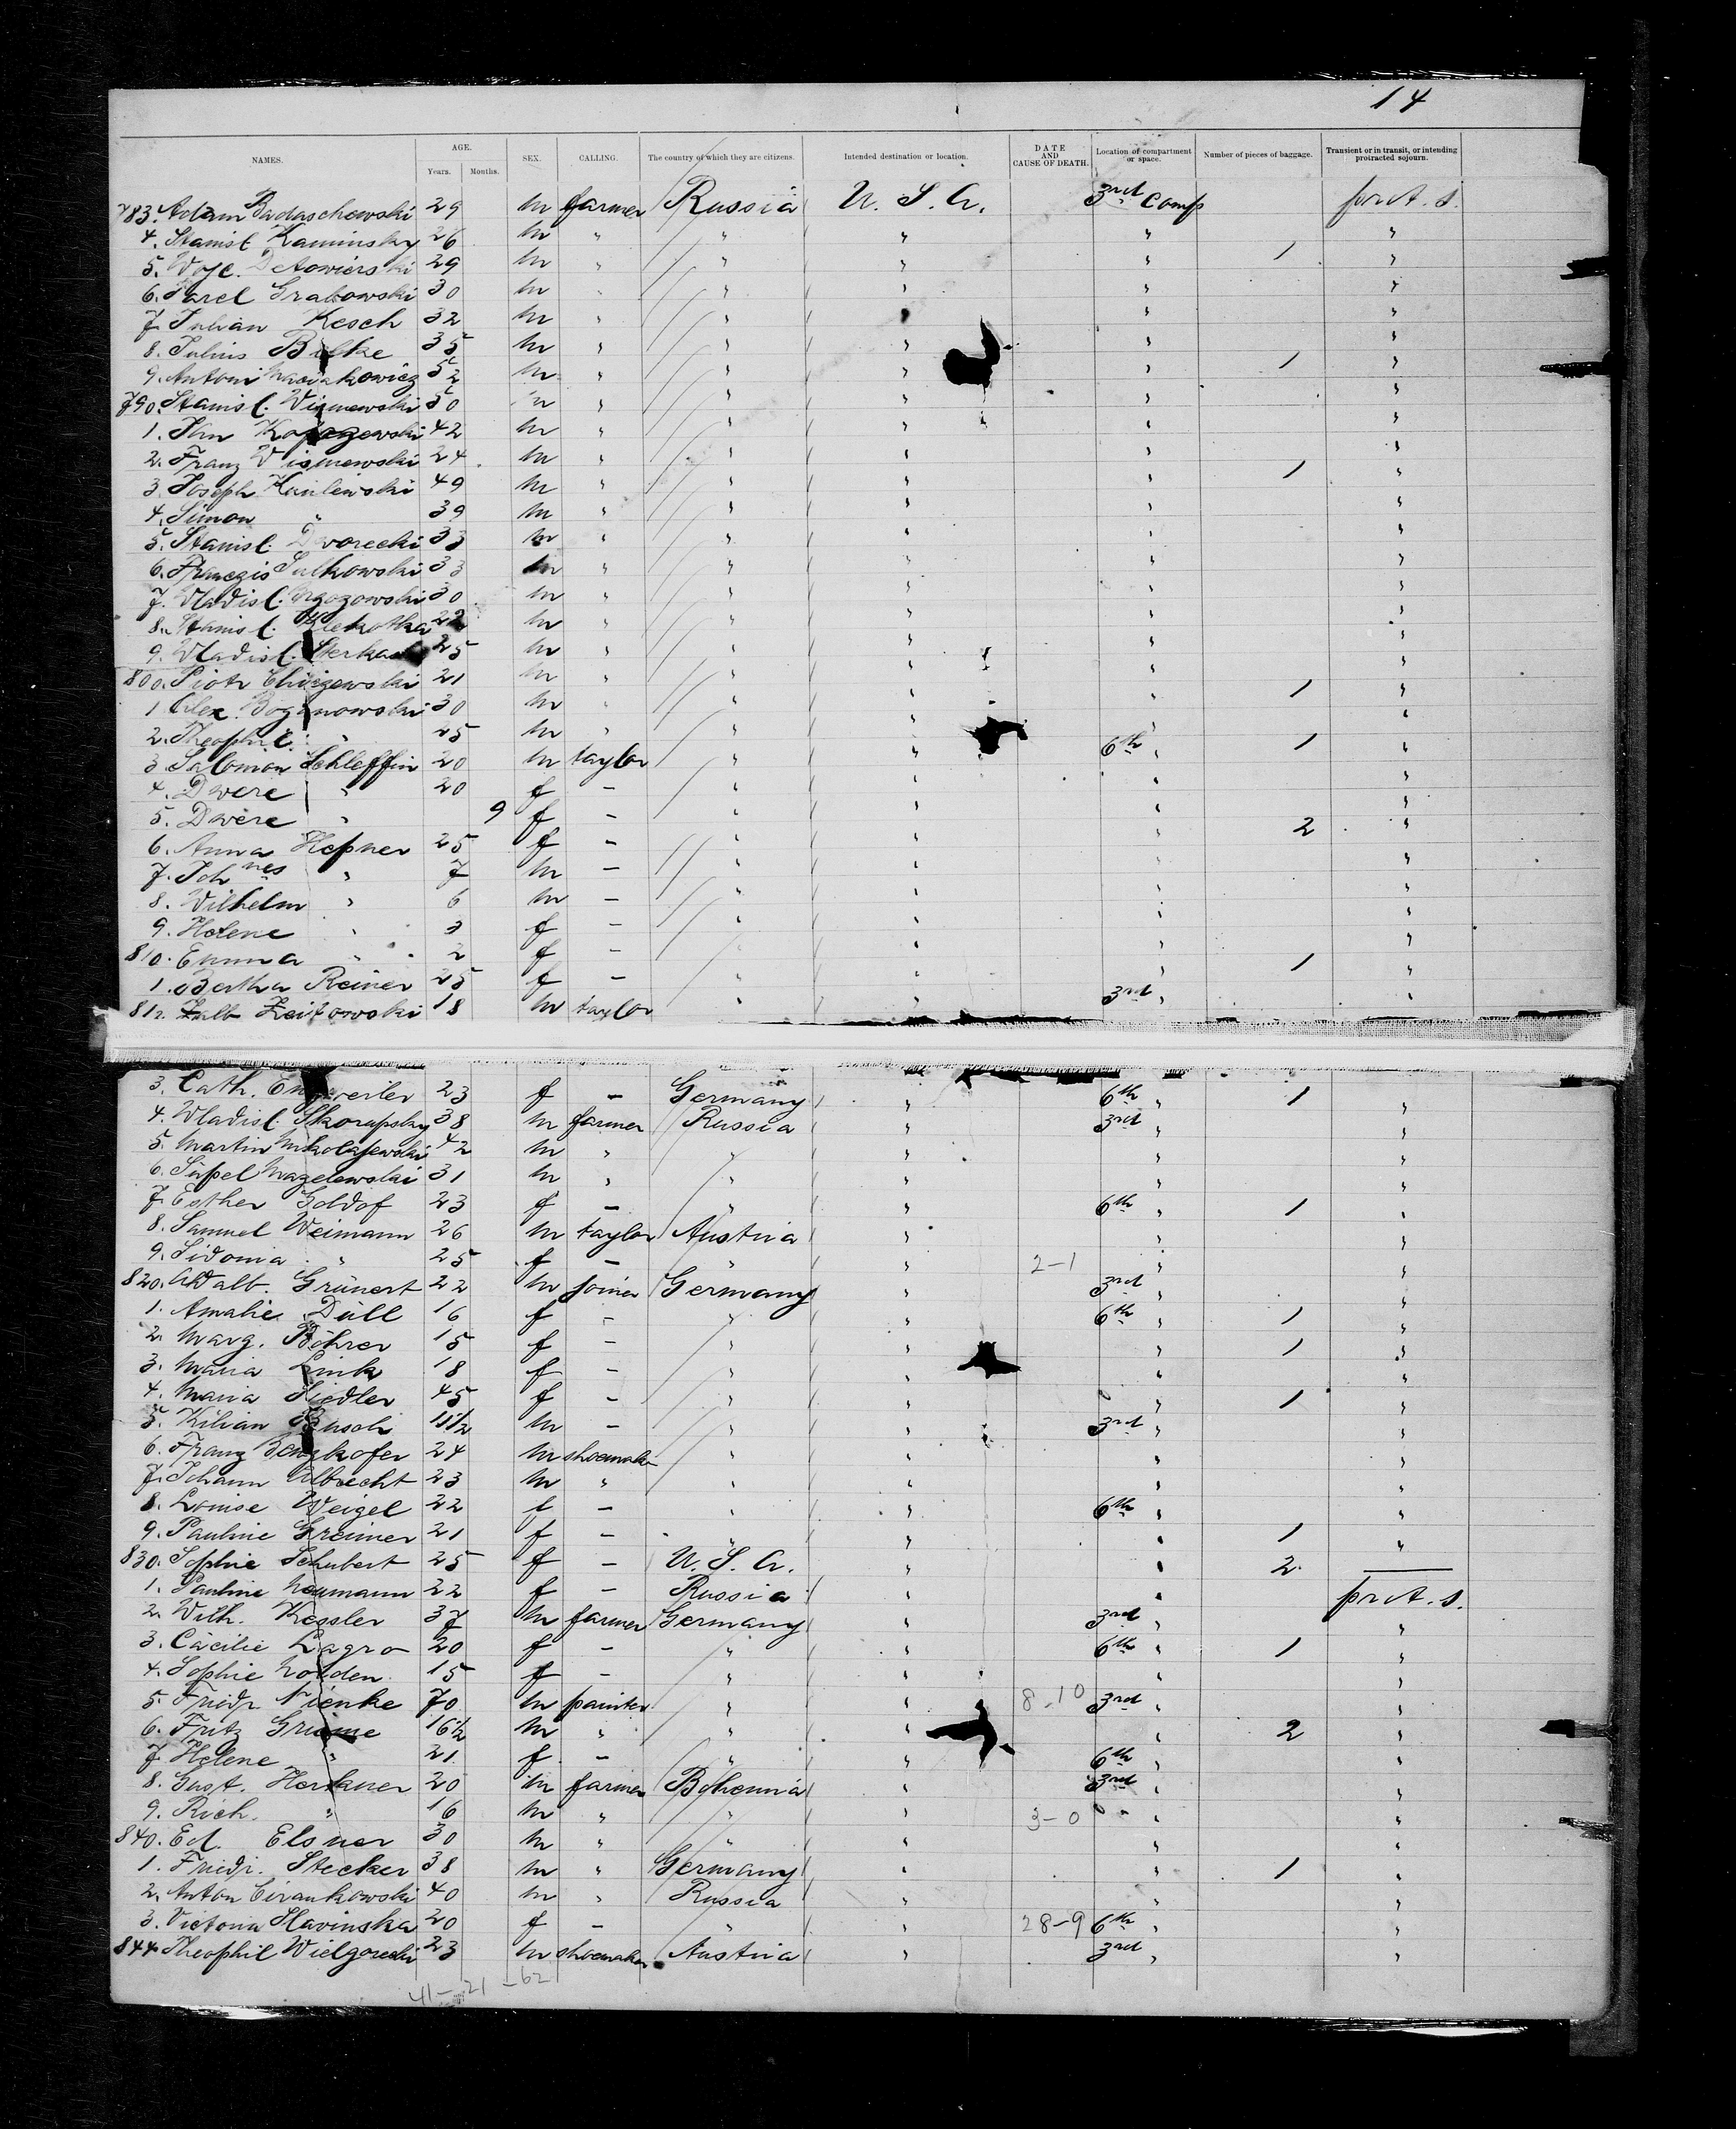 14
NAMES. AGE. Years. Months. SEX. CALLING. The country of which they are citizens. Intended destination or location. DATE AND CAUSE OF DEATH. Location of compartment or space. Number of pieces of baggage. Transient or in transit, or intending protracted sojourn.
783. Adam Badaschowski 29 m farmer Russia U. S. A. 3rd Comp prot. s.
4. Stanisl. Kaminsky 26 m " " " " "
5. Wojc. 29 m " " " " 1 "
6. Grabowski 30 m " " " " "
7. Julian Kesch 32 m " " " " "
8. Julius Bilke 35 m " " " " "
9. Antoni 52 m " " " " 1 "
790. Stanisl. Wismewski 50 m " " " " "
1. Jan 42 m " " " " "
2. Franz Wismewski 24 m " " " " "
3. Joseph 49 m " " " " 1 "
4. Simon " 39 m " " " " "
5. Stanisl. Dworecki 33 m " " " " "
6. Franczis Sulkowski 33 m " " " " "
7. Wladisl. 30 m " " " " "
8. Stanisl. Klekotka 22 m " " " " "
9. Wladisl. 25 m " " " " "
800. Piotr 21 m " " " " "
1. Alex. Boganowski 30 m " " " " 1 "
2. Theophil. " 25 m " " " " "
3. Salomon Schleffin 20 m taylor " " 6th " 1 "
4. Dwere " 20 f – " " " "
5. Dwere " 9 f – " " " "
6. Anna Hepner 25 f – " " " 2 "
7. Johnes " 7 m – " " " "
8. Wilhelm " 6 m – " " " "
9. Helene " 3 f – " " " "
810. Emma " 2 f – " " " "
1. Bertha Reiner 25 f – " " " 1 "
812. 18 m taylor " " 3rd " "
3. Cath. 23 f – Germany " 6th " 1 "
4. Wladisl. Skorupsky 38 m farmer Russia " 3rd " "
5. Martin Mikolajewski 42 m " " " " "
6. 31 m " " " " "
7. Esther Goldof 23 f – " " 6th " 1 "
8. Samuel Weimann 26 m taylor Austria " " "
9. Sidonia " 25 f – " 2-1 " "
820. Adalb. Grünert 22 m joiner Germany " 3rd " "
1. Amalie Düll 16 f – " " 6th " 1 "
2. Marg. 15 f – " " " 1 "
3. Maria Link 18 f – " " " "
4. Maria Siedler 45 f – " " " 1 "
5. Kilian Busch 11½ m – " " 3rd " "
6. Franz 24 m shoemaker " " " "
7. Johann Albrecht 23 m " " " " "
8. Louise Weigel 22 f – " " 6th " "
9. Pauline Greiner 21 f – " " " 1 "
830. Sophie Schubert 25 f – U. S. A. " " 2 –
1. Pauline Neumann 22 f – Russia " " prot. s.
2. Wilh. Kessler 37 m farmer Germany " 3rd " "
3. Cäcilie Lagro 20 f – " " 6th " 1 "
4. Sophie 15 f – " " " "
5. Friedr. Nienke 70 m painter " " 8-10 3rd " "
6. Fritz Grieme 16½ m " " " " 2 "
7. Helene " 21 f – " " 6th " "
8. Gust. 20 m farmer Bohemia " 3rd " "
9. Rich. " 16 m " " " 3-0 " "
840. Ed. Elsner 30 m " " " " "
1. Friedr. Stecker 38 m " Germany " " 1 "
2. Anton Cirankowski 40 m " Russia " " "
3. Victoria Slavinska 20 f – " " 28-9 6th " "
844. Theophil Wielgorecki 23 m shoemaker Austria " 3rd " "
41-21-62